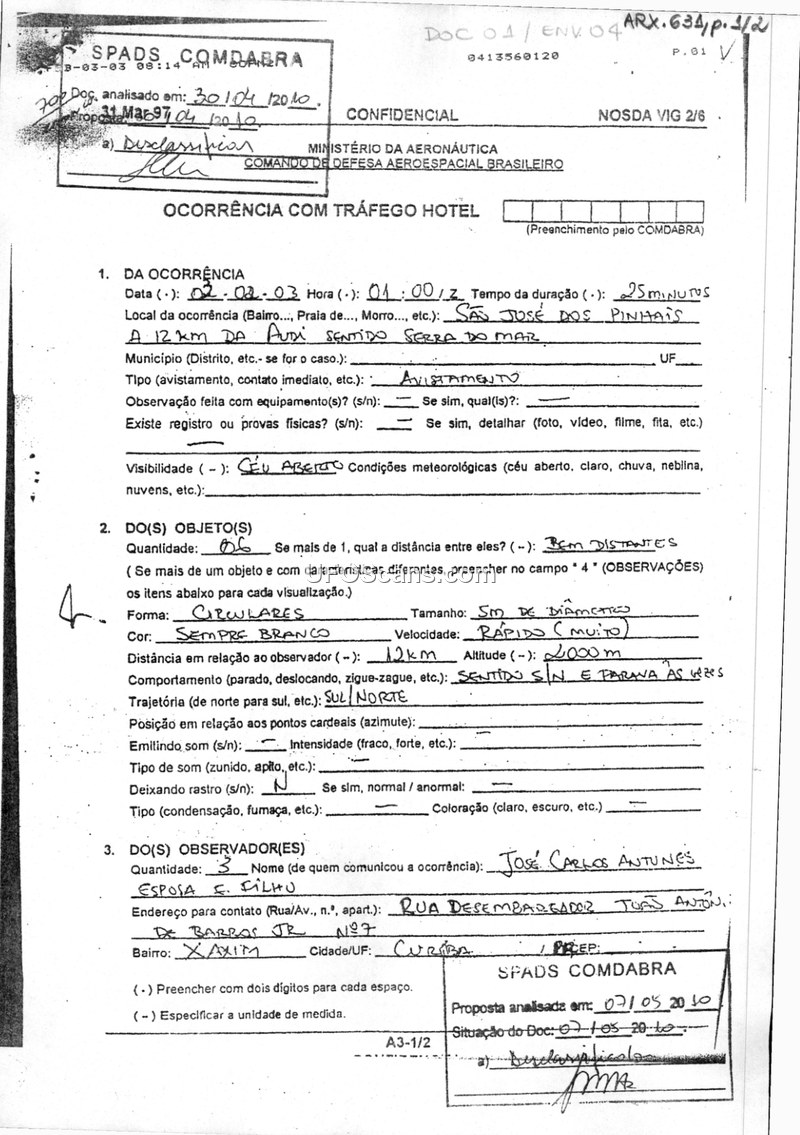 DOC 01 / ENV 04
ARX. 631, p. 1/2
0413560120
P.01
SPADS COMDABRA
3-03-03 08:14 AM
Doc. analisado em: 30/04/2010.
31 Mar 97
Proposta 30/04/2010
a) Desclassificar
CONFIDENCIAL
NOSDA VIG 2/6
MINISTÉRIO DA AERONÁUTICA
COMANDO DE DEFESA AEROESPACIAL BRASILEIRO
OCORRÊNCIA COM TRÁFEGO HOTEL
(Preenchimento pelo COMDABRA)
1. DA OCORRÊNCIA
Data (·): 02-02-03 Hora (·): 01:00/Z Tempo da duração (·): 25 MINUTOS
Local da ocorrência (Bairro..., Praia de..., Morro..., etc.): SÃO JOSÉ DOS PINHAIS
A 12 KM DA AUDI SENTIDO SERRA DO MAR
Município (Distrito, etc.- se for o caso.): UF
Tipo (avistamento, contato imediato, etc.): AVISTAMENTO
Observação feita com equipamento(s)? (s/n): — Se sim, qual(is)?: —
Existe registro ou provas físicas? (s/n): — Se sim, detalhar (foto, vídeo, filme, fita, etc.)
—
Visibilidade ( ~ ): CÉU ABERTO Condições meteorológicas (céu aberto, claro, chuva, neblina,
nuvens, etc.):
2. DO(S) OBJETO(S)
Quantidade: 06 Se mais de 1, qual a distância entre eles? ( ~ ): BEM DISTANTES
( Se mais de um objeto e com características diferentes, preencher no campo " 4 " (OBSERVAÇÕES)
UFOScans.com
os itens abaixo para cada visualização.)
Forma: CIRCULARES Tamanho: 5M DE DIÂMETRO
Cor: SEMPRE BRANCO Velocidade: RÁPIDO (MUITO)
Distância em relação ao observador ( ~ ): 12 KM Altitude ( ~ ): 2000 m
Comportamento (parado, deslocando, zigue-zague, etc.): SENTIDO S/N E PARAVA ÀS VEZES
Trajetória (de norte para sul, etc.): SUL/NORTE
Posição em relação aos pontos cardeais (azimute):
Emitindo som (s/n): — Intensidade (fraco, forte, etc.): —
Tipo de som (zunido, apito, etc.): —
Deixando rastro (s/n): N Se sim, normal / anormal: —
Tipo (condensação, fumaça, etc.): — Coloração (claro, escuro, etc.) —
3. DO(S) OBSERVADOR(ES)
Quantidade: 3 Nome (de quem comunicou a ocorrência): JOSÉ CARLOS ANTUNES
ESPOSA E FILHO
Endereço para contato (Rua/Av., n.º, apart.): RUA DESEMBARGADOR JOÃO ANTÔN.
DE BARROS JR Nº 7
Bairro: XAXIM Cidade/UF: CURITIBA / PR CEP:
( · ) Preencher com dois dígitos para cada espaço.
( ~ ) Especificar a unidade de medida.
A3-1/2
SPADS COMDABRA
Proposta analisada em: 07/05 2010
Situação do Doc: 07/05 2010
a) Desclassificado